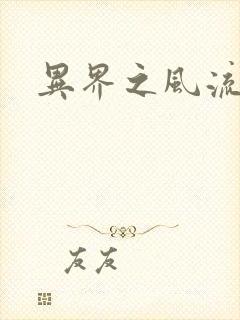 異界之風流
友友